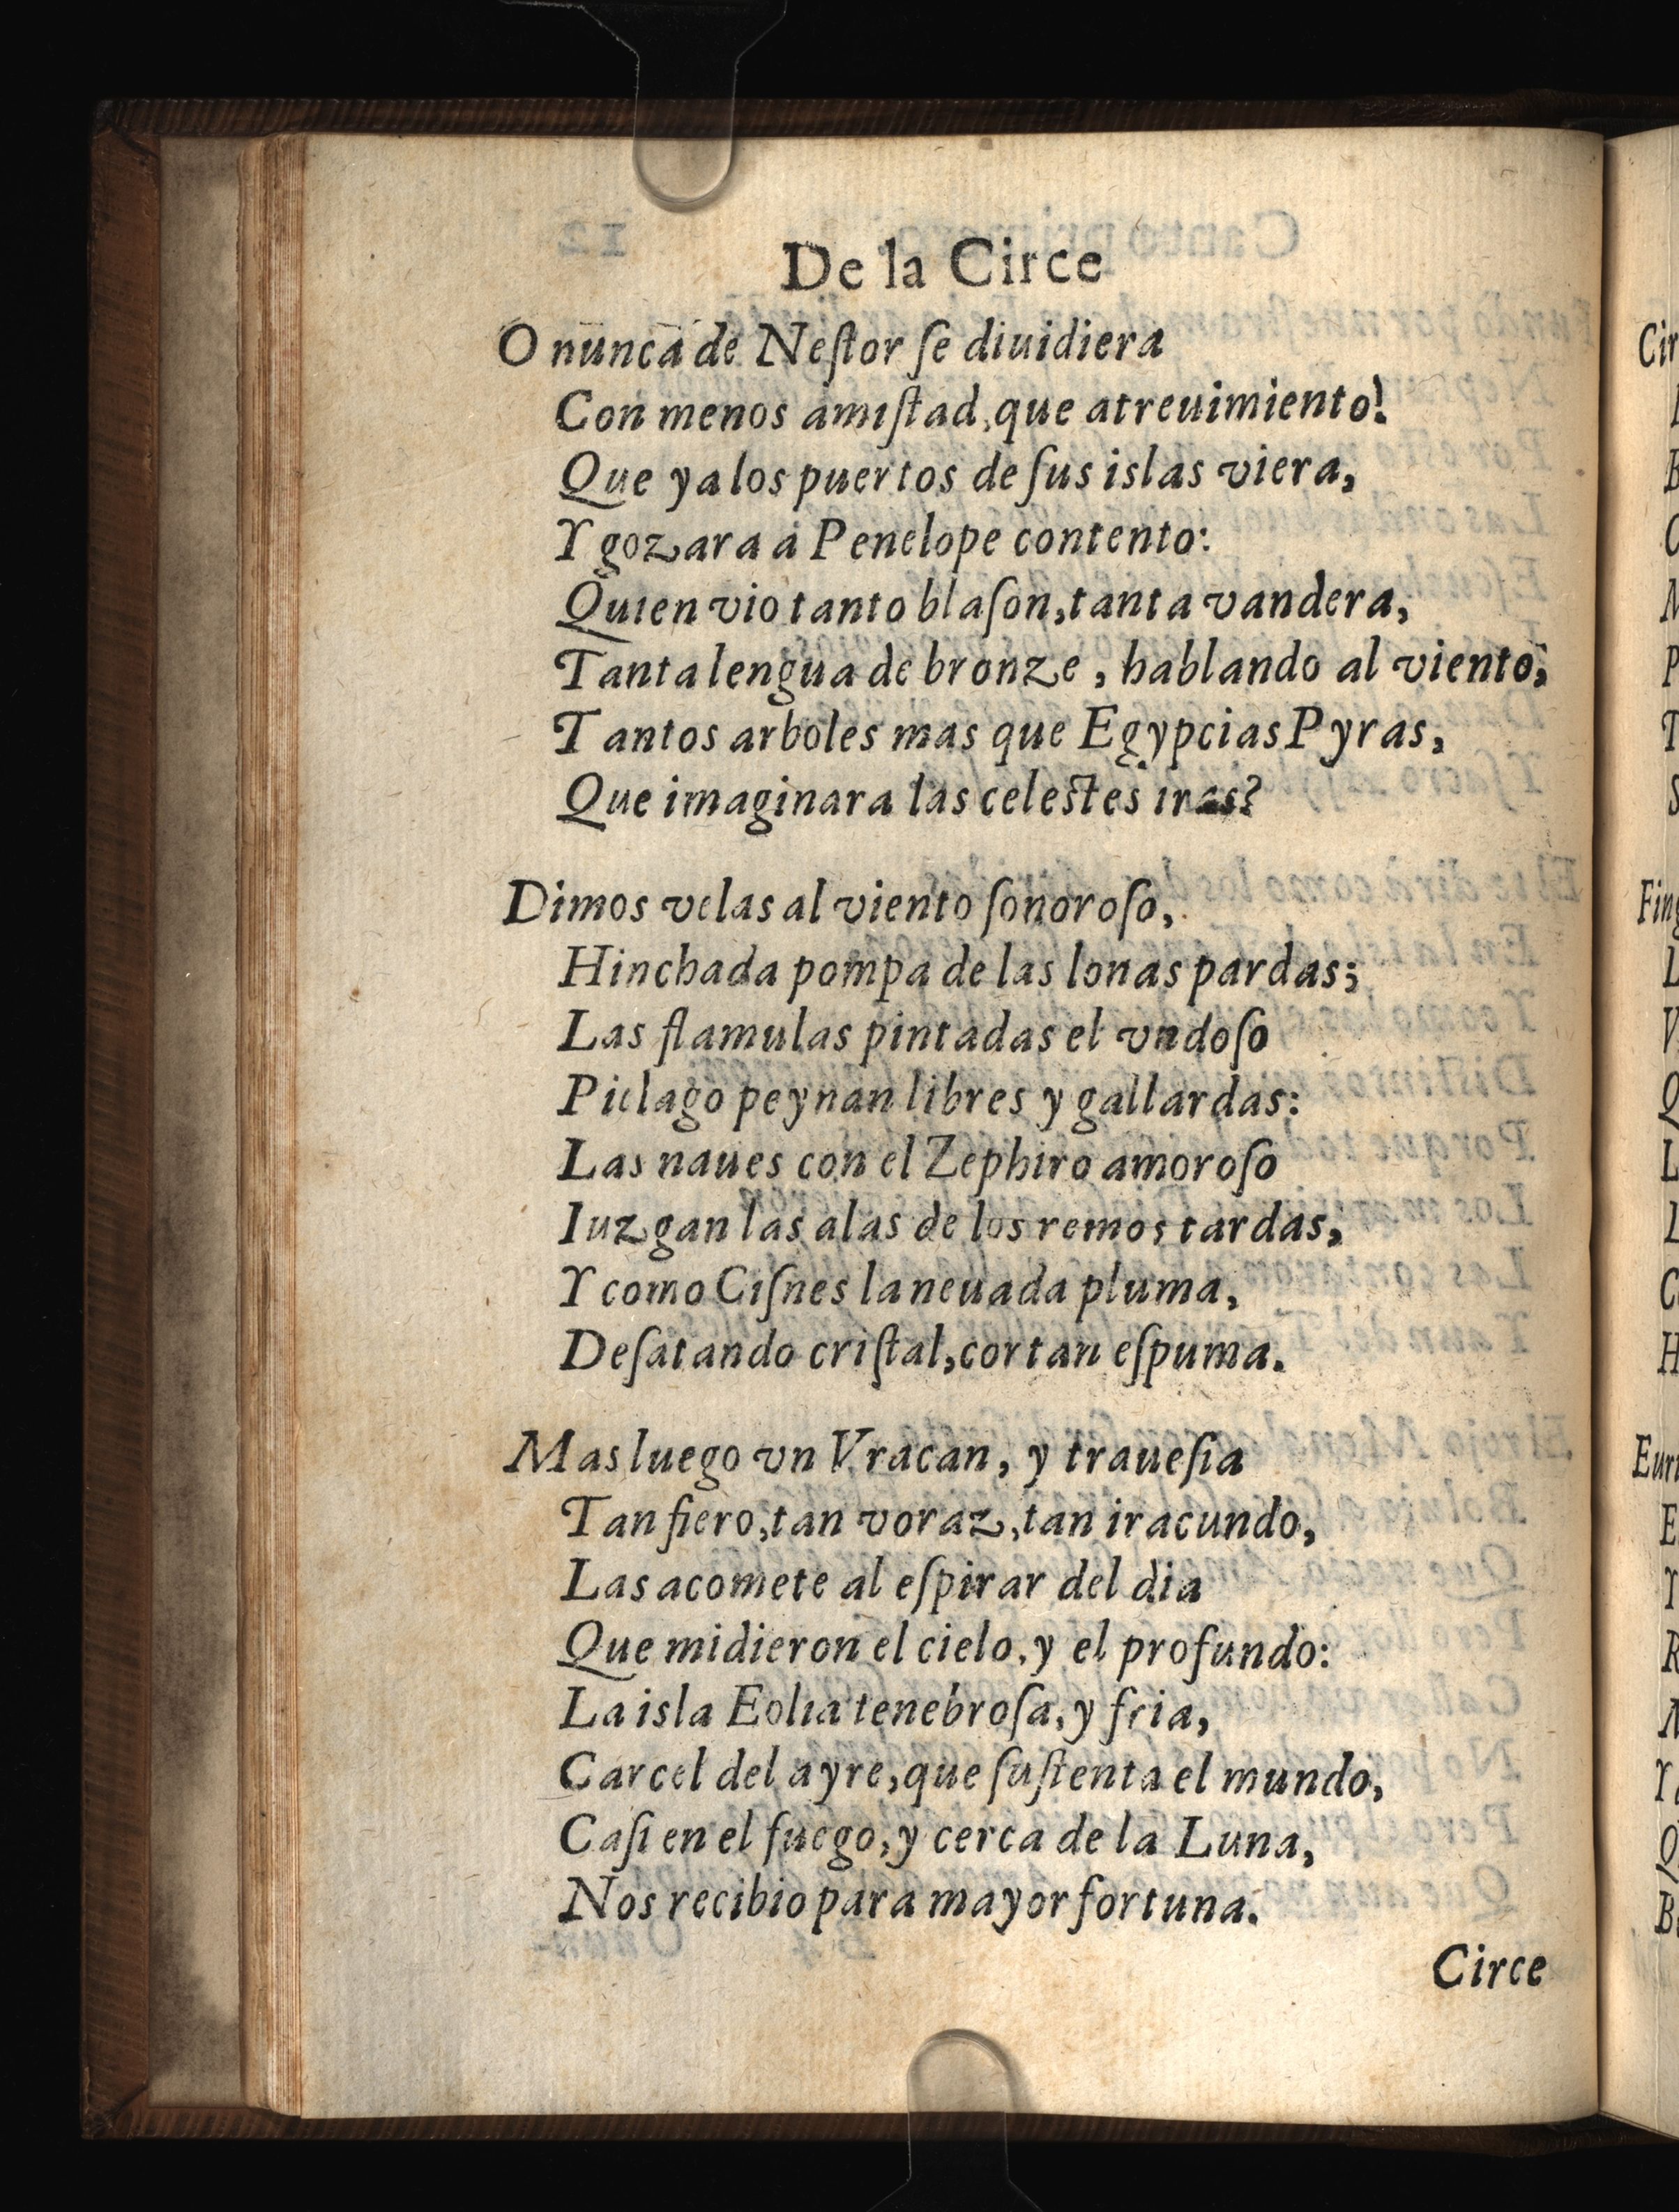 De la Circe
O nunca de Neſtor ſe diuidiera
Con menos amiſtad, que atreuimiento!
Que ya los puertos de ſus islas viera,
Y gozara a Penelope contento:
Quien vio tanto blaſon, tanta vandera,
Tanta lengua de bronze, hablando al viento,
Tantos arboles mas que Egypcias Pyras,
Que imaginara las celeſtes iras?
Dimos velas al viento ſonoroſo,
Hinchada pompa de las lonas pardas;
Las flamulas pintadas el vndoſo
Pielago peynan libres y gallardas:
Las naues con el Zephiro amoroſo
Iuzgan las alas de los remos tardas,
Y como Ciſnes la neuada pluma,
Deſatando criſtal, cortan eſpuma.
Mas luego vn Vracan, y traueſia
Tan fiero, tan voraz, tan iracundo,
Las acomete al eſpirar del dia
Que midieron el cielo, y el profundo:
La isla Eolia tenebroſa, y fria,
Carcel del ayre, que ſuſtenta el mundo,
Caſi en el fuego, y cerca de la Luna,
Nos recibio para mayor fortuna.
Circe